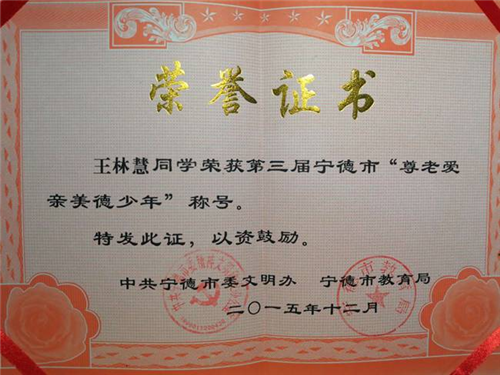 荣誉证书
王林慧同学荣获第三届宁德市“尊老爱
亲美德少年”称号。
特发此证，以资鼓励。
中共宁德市委文明办 宁德市教育局
二〇一五年十二月